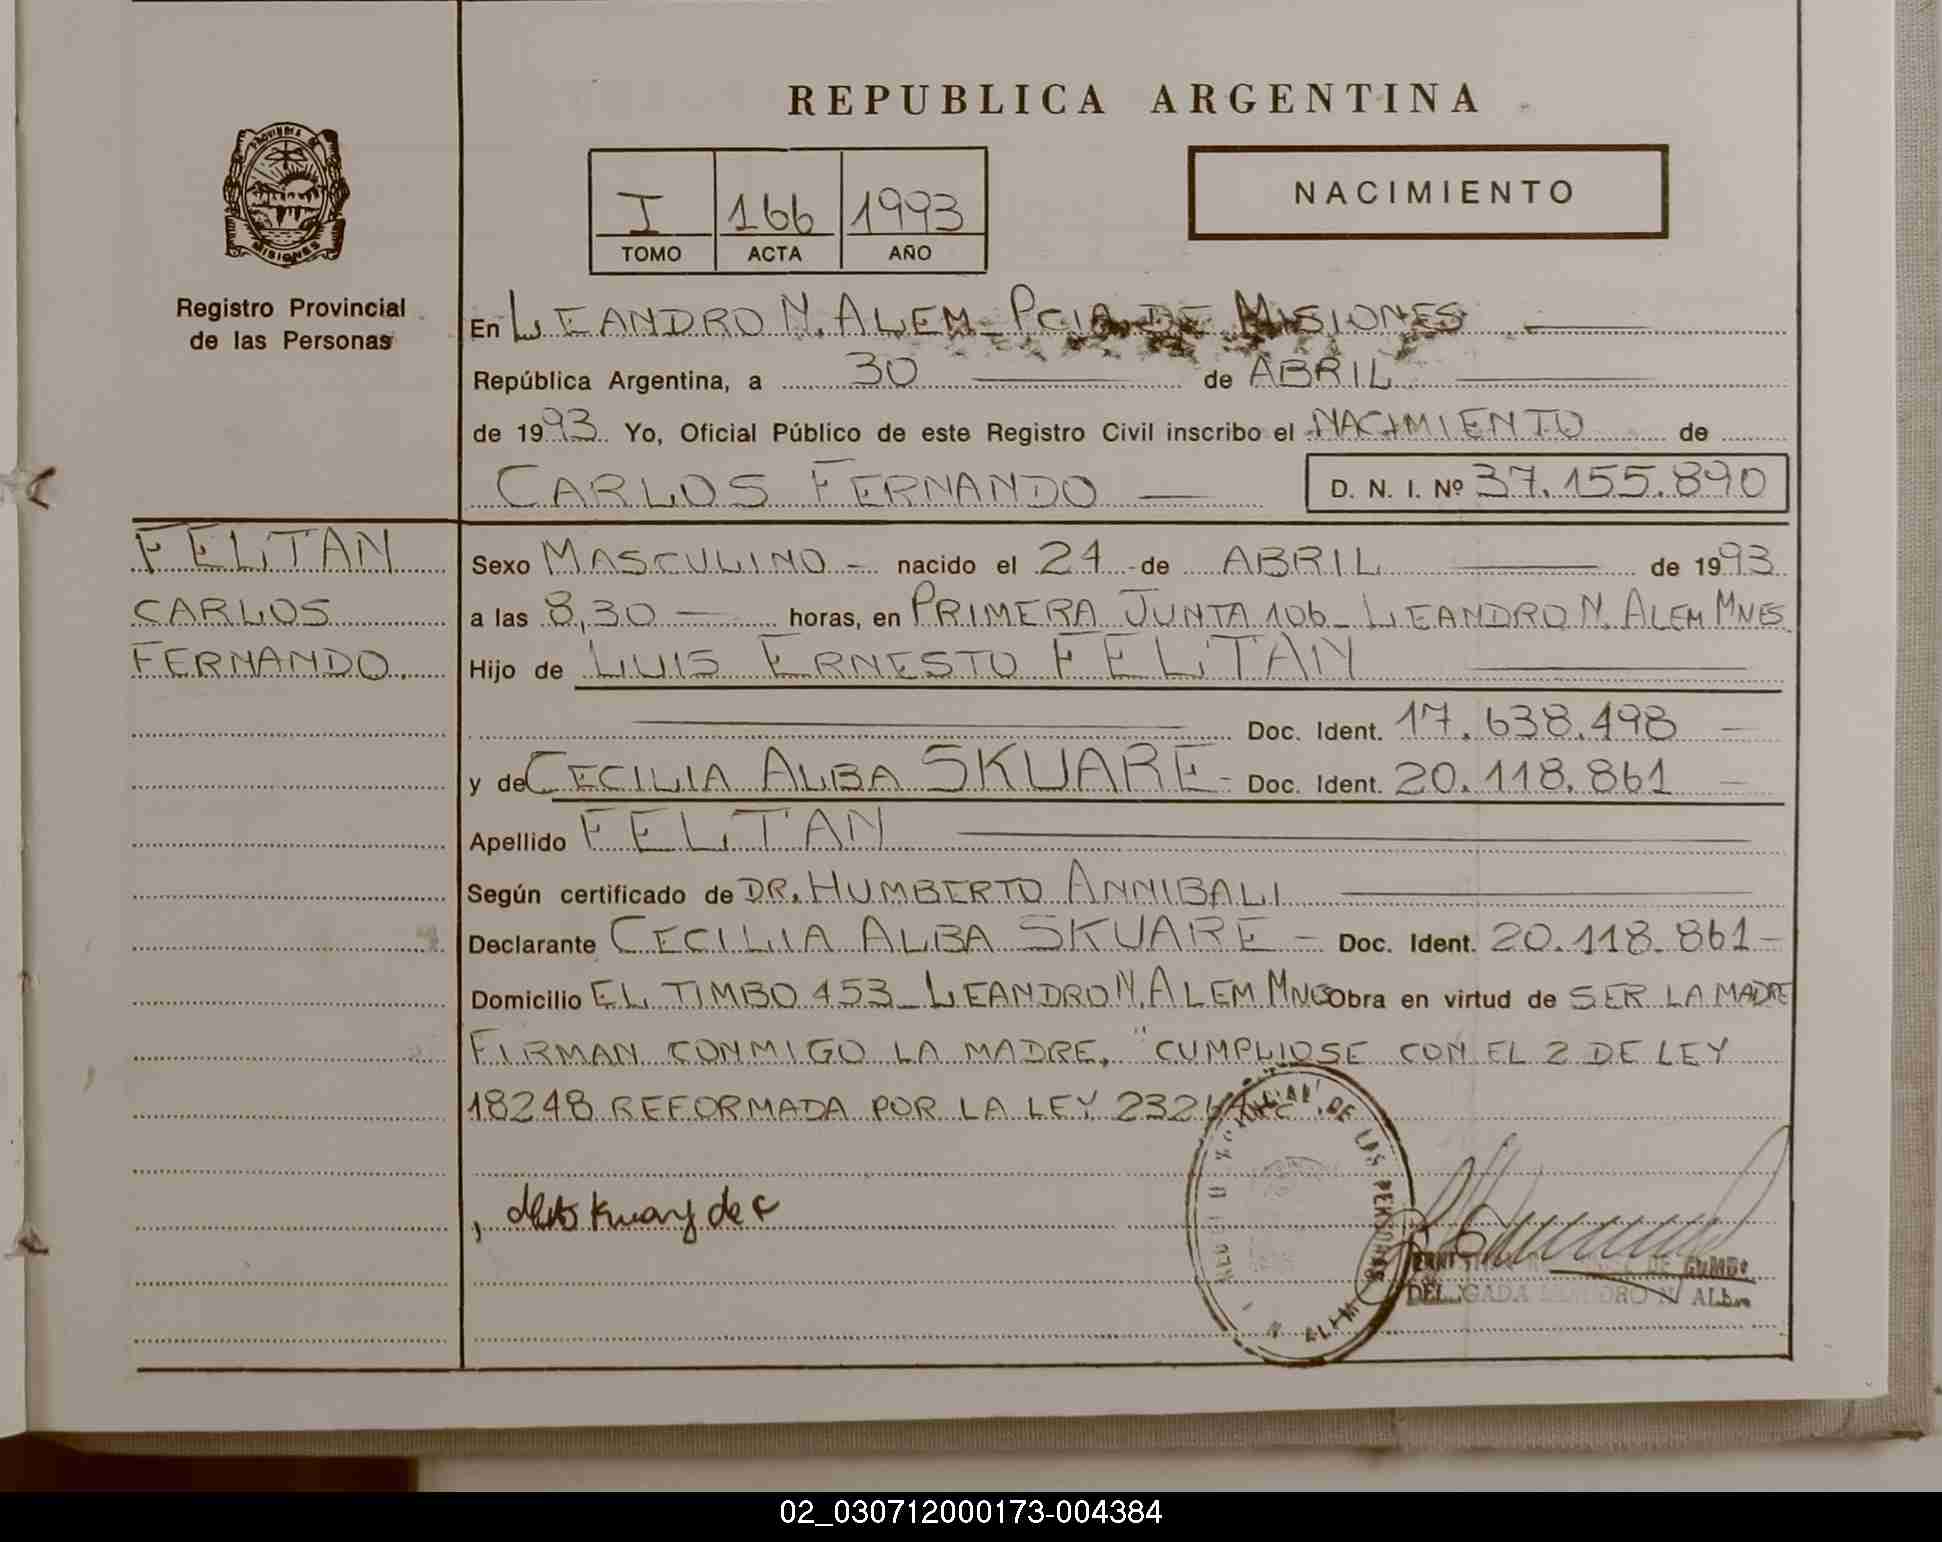 REPUBLICA ARGENTINA
PROVINCIA DE
MISIONES
Registro Provincial
de las Personas
I 166 1993
TOMO ACTA AÑO
NACIMIENTO
En LEANDRO N. ALEM - PCIA DE MISIONES
República Argentina, a 30 de ABRIL
de 1993 Yo, Oficial Público de este Registro Civil inscribo el NACIMIENTO de
CARLOS FERNANDO D. N. I. Nº 37.155.890
FELTAN
CARLOS
FERNANDO.
Sexo MASCULINO - nacido el 24 de ABRIL de 1993
a las 8,30 horas, en PRIMERA JUNTA 106 - LEANDRO N. ALEM MNES
Hijo de LUIS ERNESTO FELTAN
Doc. Ident. 17.638.498
y de CECILIA ALBA SKUARE - Doc. Ident. 20.118.861
Apellido FELTAN
Según certificado de DR. HUMBERTO ANNIBALI
Declarante CECILIA ALBA SKUARE - Doc. Ident. 20.118.861 -
Domicilio EL TIMBO 453 - LEANDRO N. ALEM MNES Obra en virtud de SER LA MADRE
FIRMAN CONMIGO LA MADRE. "CUMPLIOSE CON EL 2 DE LEY
18248 REFORMADA POR LA LEY
DE LAS PERSONAS
02_030712000173-004384